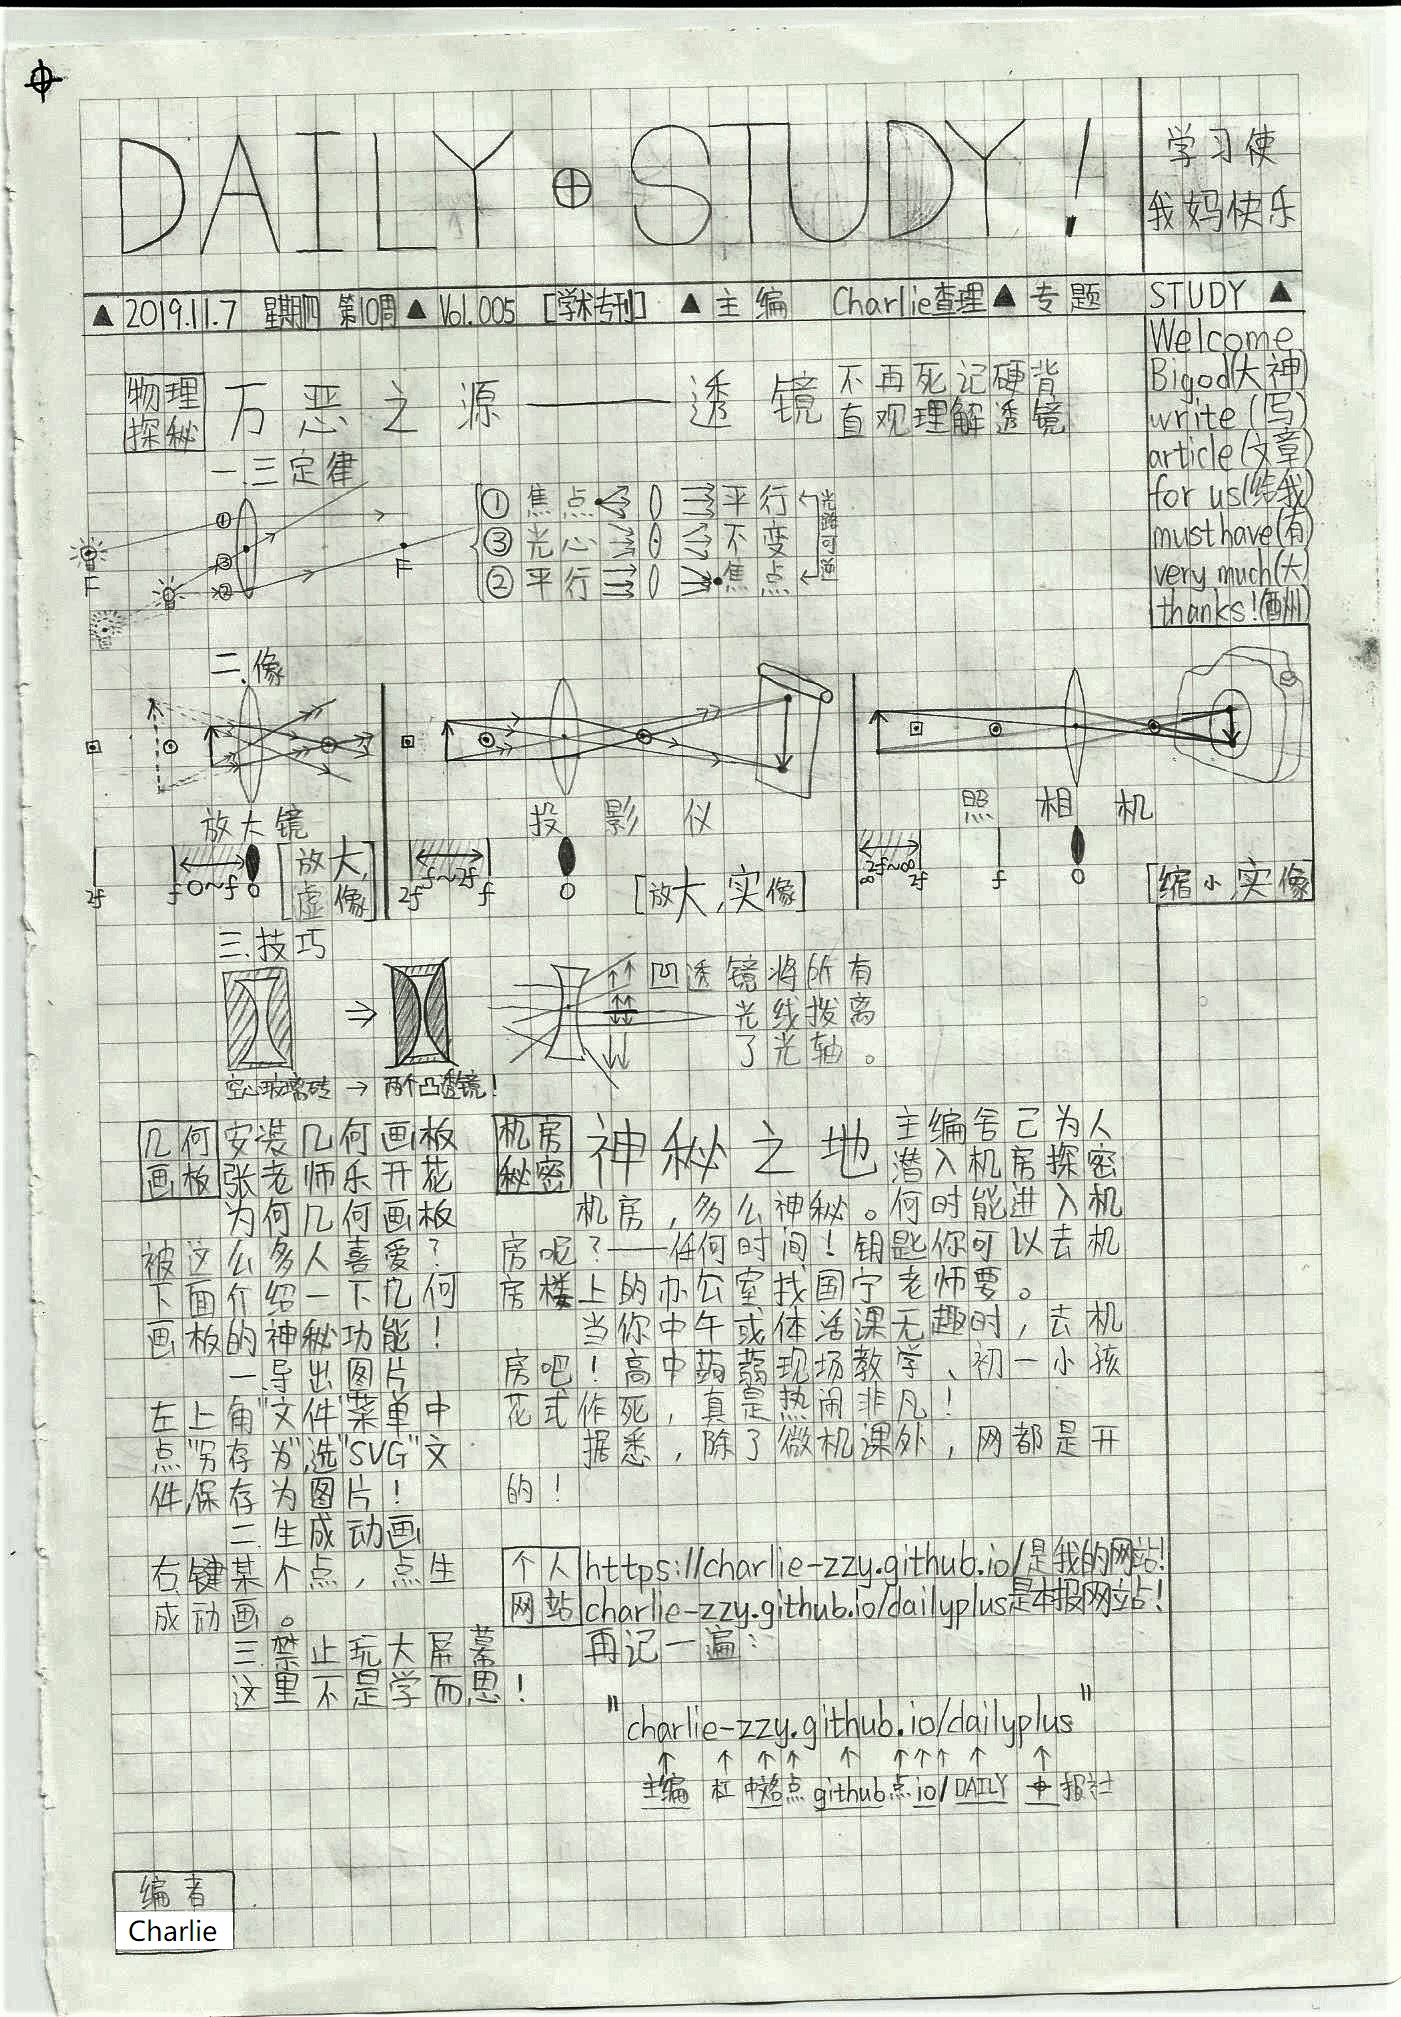 DAILY⊕STUDY!
学习使
我妈快乐
▲2019.11.7 星期四 第10周▲Vol.005 [学术专刊] ▲主编 Charlie查理▲专题 STUDY▲
Welcome
Bigod(大神)
write(写)
article(文章)
for us(给我)
must have(有)
very much(大)
thanks!(酬)
物理
探秘
万恶之源——透镜
不再死记硬背
直观理解透镜
一.三定律
① ③ ② F F
①焦点 平行
③光心 不变
②平行 焦点
光路可逆
二.像
放大镜
2f f 0~f 0
[放大,
虚像]
投影仪
2f f~2f f 0
[放大,实像]
照相机
∞ 2f~∞ 2f f 0
[缩小,实像]
三.技巧
空心玻璃砖→两个凸透镜!
凹透镜将所有
光线拨离
了光轴。
几何
画板
安装几何画板
张老师乐开花
为何几何画板
被这么多人喜爱?
下面介绍一下几何
画板的神秘功能!
一.导出图片
左上角"文件"菜单中
点"另存为",选"SVG"文
件,保存为图片!
二.生成动画
右键某个点,点生
成动画。
三.禁止玩大屏幕
这里不是学而思!
机房
秘密
神秘之地
主编舍己为人
潜入机房探密
机房,多么神秘。何时能进入机
房呢?——任何时间!钥匙你可以去机
房楼上的办公室找国宁老师要。
当你中午或体活课无趣时,去机
房吧!高中蒟蒻现场教学、初一小孩
花式作死,真是热闹非凡!
据悉,除了微机课外,网都是开
的!
个人
网站
https://charlie-zzy.github.io/是我的网站!
charlie-zzy.github.io/dailyplus是本报网站!
再记一遍:
"charlie-zzy.github.io/dailyplus"
主编 杠 点 github 点 io / DAILY ⊕ 报社
编者
Charlie